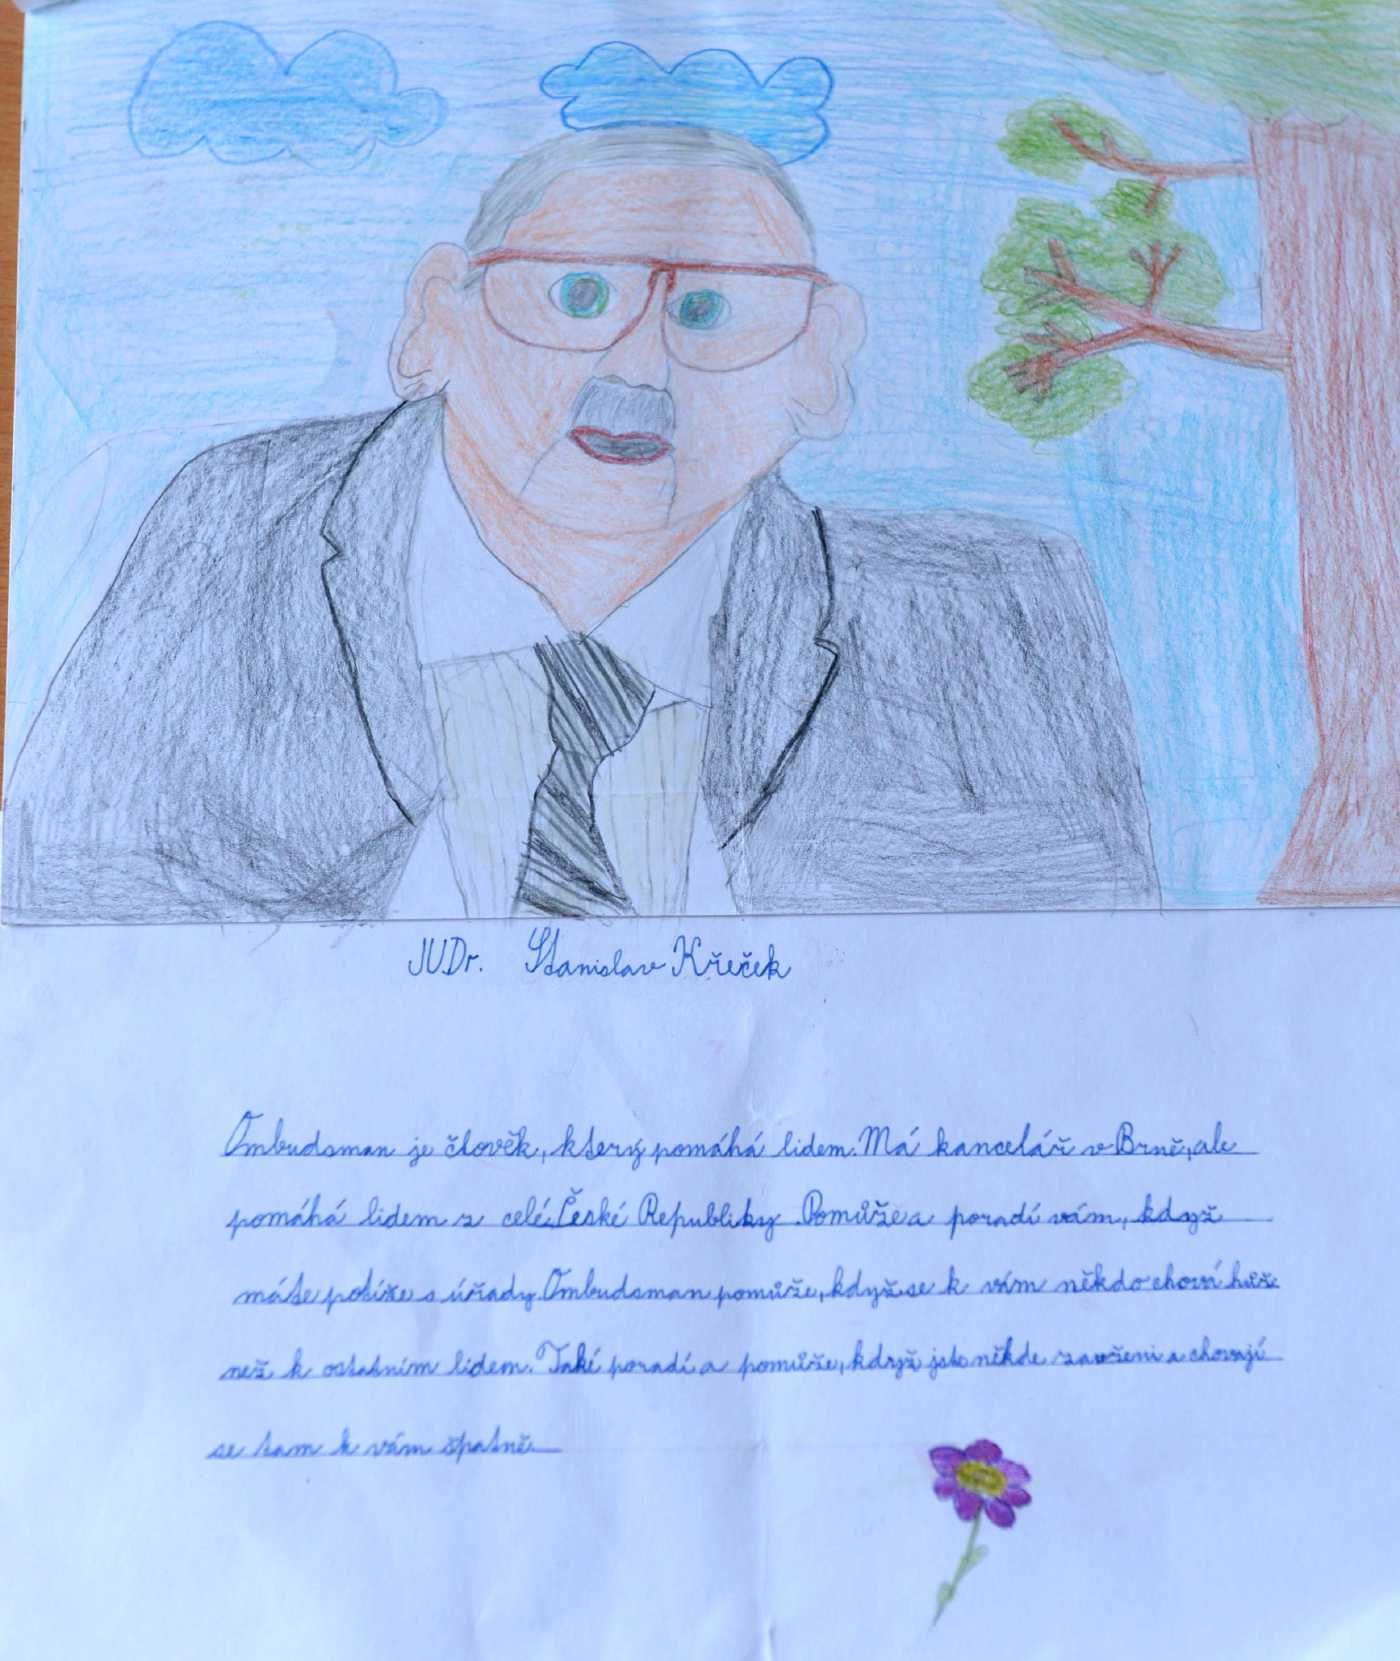 JUDr. Stanislav Křeček
Ombudsman je člověk, který pomáhá lidem. Má kancelář v Brně, ale
pomáhá lidem z celé České Republiky. Pomůže a poradí vám, když
máte potíže s úřady. Ombudsman pomůže, když se k vám někdo chová hůře
než k ostatním lidem. Také poradí a pomůže, když jste někde zavřeni a chovají
se tam k vám špatně.